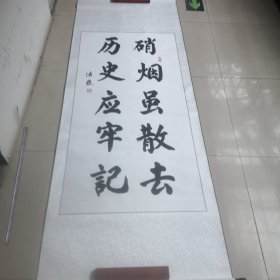 硝烟虽散去
历史应牢記